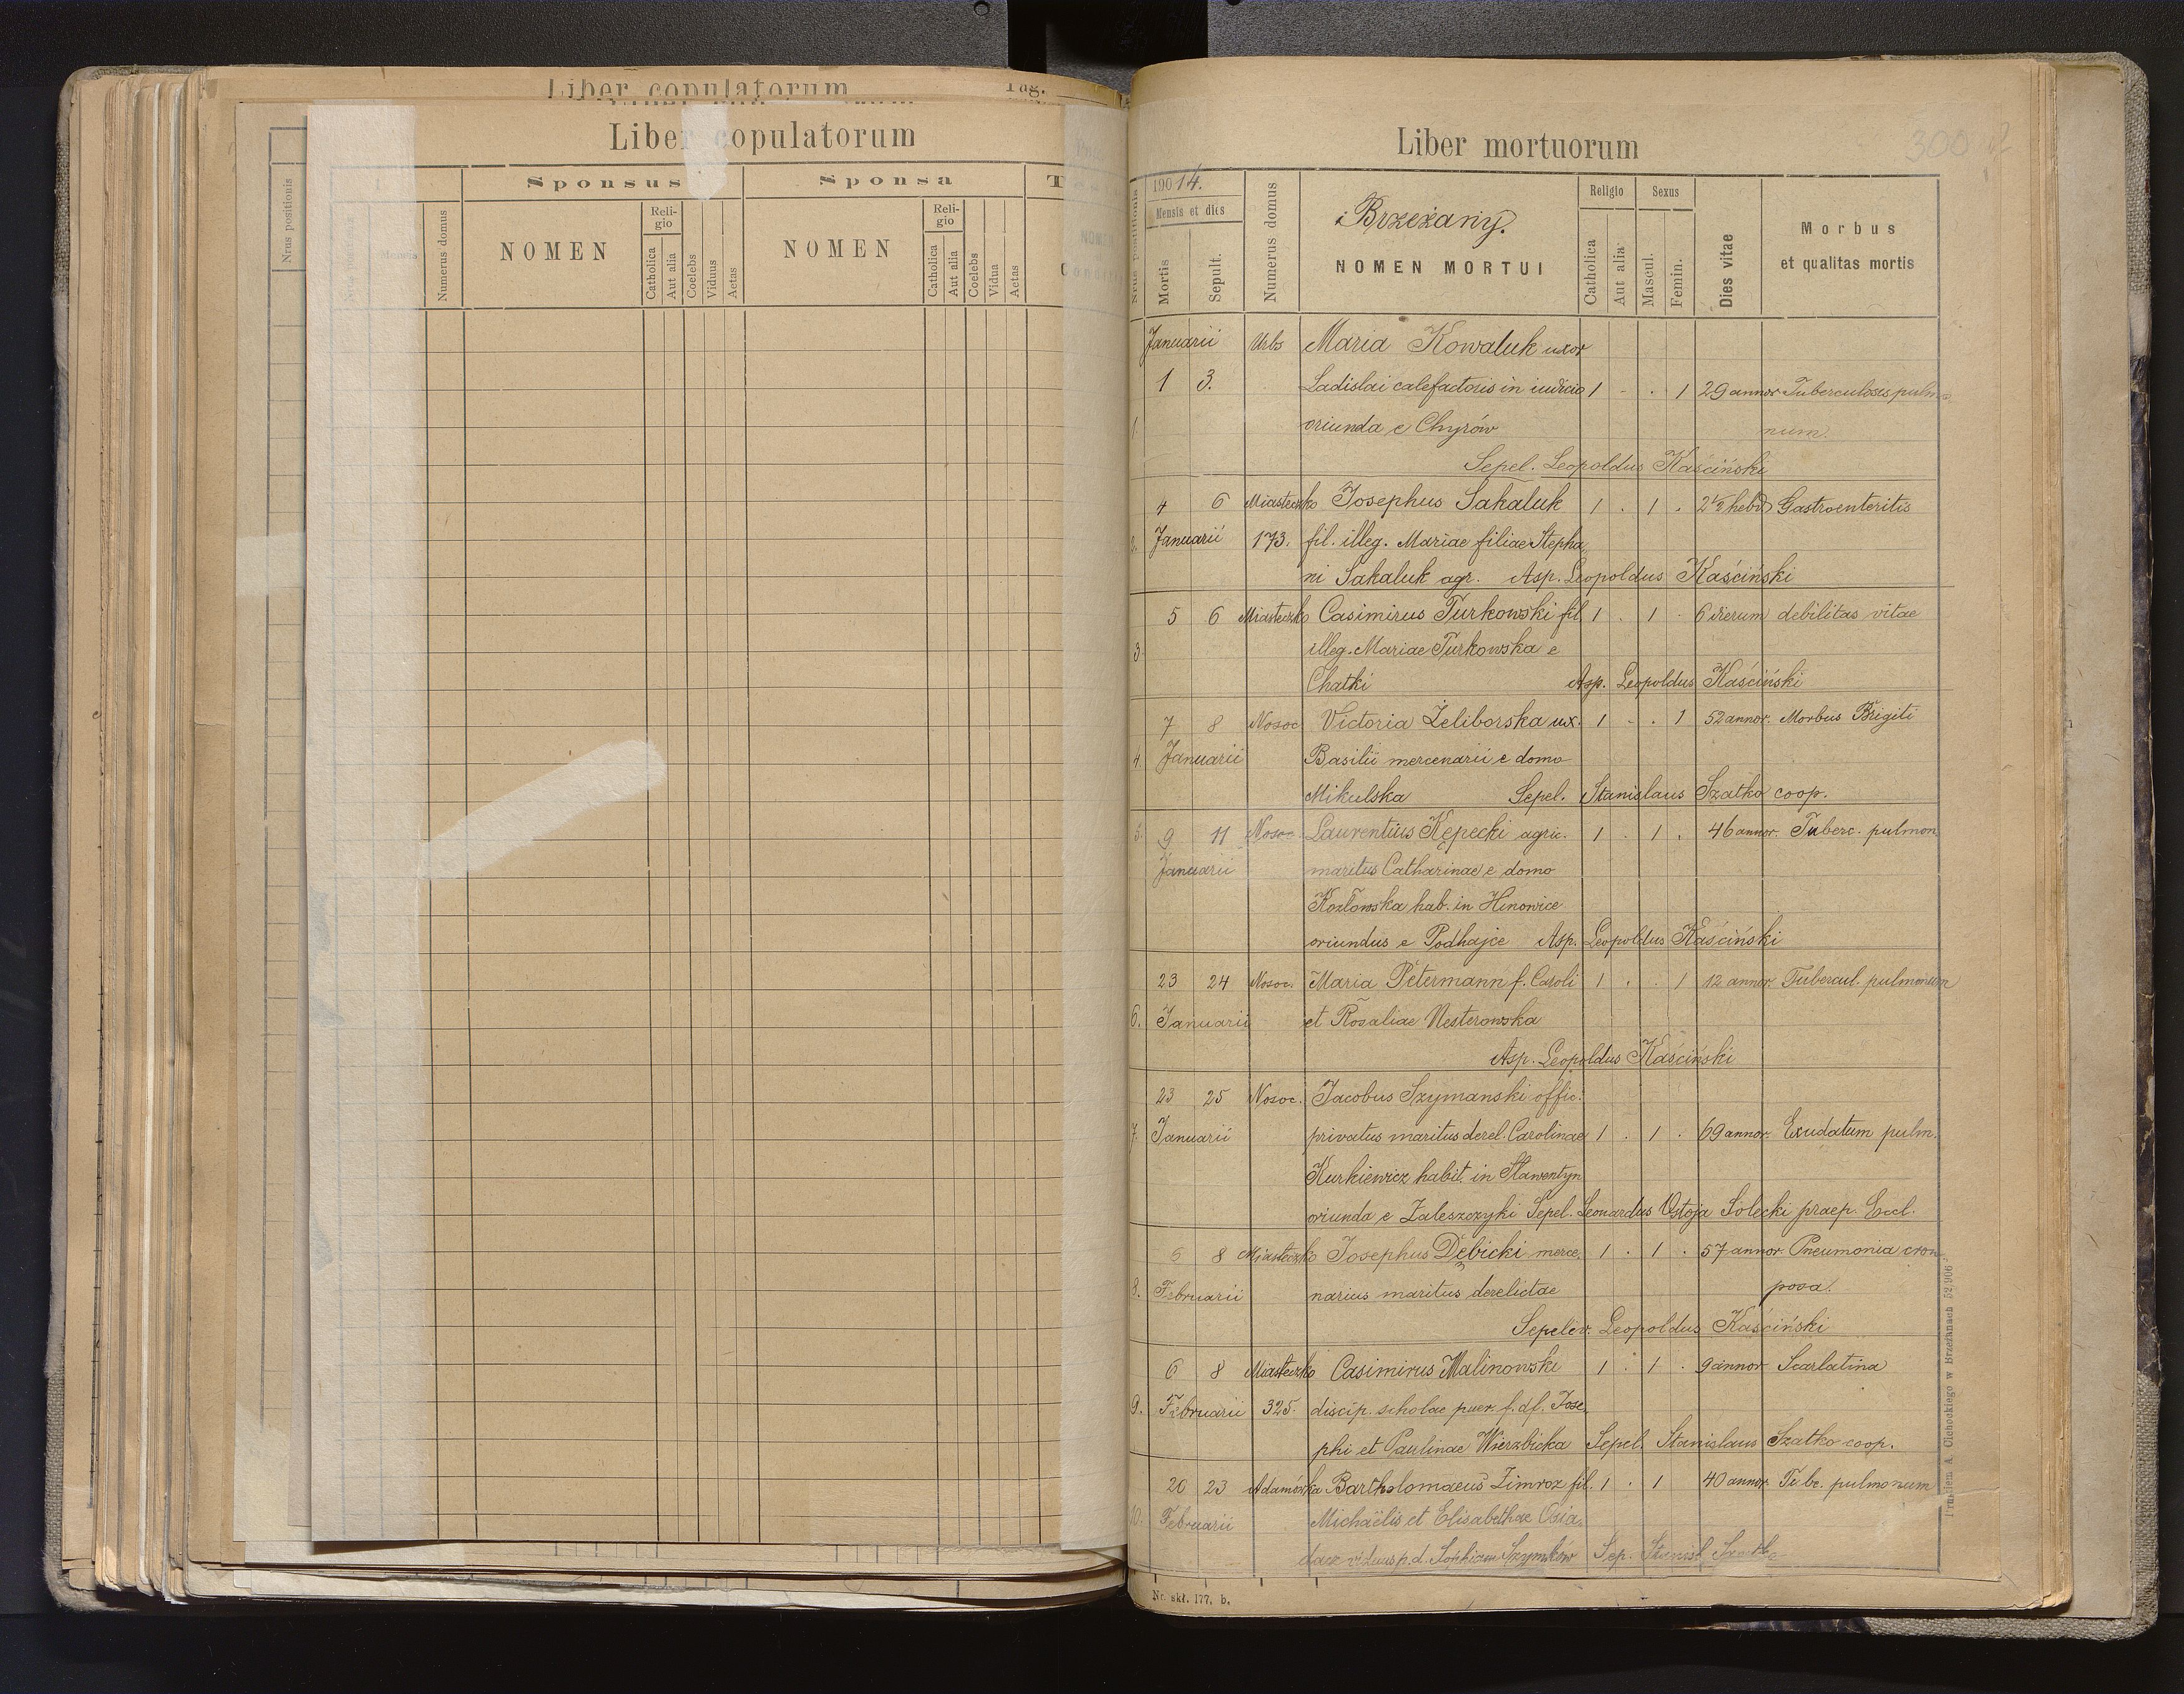 Liber copulatorum Pag.
Liber copulatorum
Nrus positionis
Sponsus Sponsa
Mensis
Numerus domus
NOMEN
Reli-
gio
Catholica
Aut alia
Coelebs
Viduus
Aetas
NOMEN
Reli-
gio
Catholica
Aut alia
Coelebs
Vidua
Aetas
Liber mortuorum
300
Nrus positionis
190 14.
Mensis et dies
Mortis
Sepult.
Numerus domus
Brzeżany.
NOMEN MORTUI
Religio
Catholica
Aut alia
Sexus
Mascul.
Femin.
Dies vitae
Morbus
et qualitas mortis
Januarii Urbs Maria Kowaluk uxor
1 3. Ladislai calefactoris in iudicio 1 - . 1 29 annor Tuberculosis pulmo
1. oriunda e Chyrów num.
Sepel. Leopoldus Kaściński
4 6 Miasteczko Josephus Sakaluk 1 . 1 . 2 1/2 hebd Gastroenteritis
2. Januarii 173. fil. illeg. Mariae filiae Stepha
ni Sakaluk agr. Asp. Leopoldus Kaściński
5 6 Miasteczko Casimirus Turkowski fil 1 . 1 . 6 dierum debilitas vitae
3. illeg. Mariae Turkowska e
Chatki Asp. Leopoldus Kaściński
7 8 Nosoc. Victoria Żeliborska ux. 1 - . 1 52 annor. Morbus Brigiti
4. Januarii Basilii mercenarii e domo
Mikulska Sepel. Stanislaus Szatko coop.
5. 9 11 Nosoc. Laurentius Kępecki agric. 1 . 1 . 46 annor. Tuberc. pulmon
Januarii maritus Catharinae e domo
Kozłowska hab. in Hinowice
oriundus e Podhajce Asp. Leopoldus Kaściński
23 24 Nosoc. Maria Petermann f. Caroli 1 . . 1 12 annor Tubercul. pulmonum
6. Januarii et Rosaliae Nesterowska
Asp. Leopoldus Kaściński
23 25 Nosoc. Jacobus Szymanski offic.
7. Januarii privatus maritus derel. Carolinae 1 . 1 . 69 annor. Exudatum pulm.
Kurkiewicz habit. in Sławentyn
oriunda e Zaleszczyki Sepel. Leonardus Ostoja Solecki praep. Eccl.
6 8 Miasteczko Josephus Dębicki merce. 1 . 1 . 57 annor. Pneumonia crou
8. Februarii narius maritus derelictae posa.
Sepeliv. Leopoldus Kaściński
6 8 Miasteczko Casimirus Malinowski 1 . 1 . 9 annor Scarlatina
9. Februarii 325. discip. scholae puer. f. df. Jose
phi et Paulinae Wierzbicka Sepel. Stanislaus Szatko coop.
20 23 Adamówka Bartholomaeus Zimroz fil. 1 . 1 40 annor. Tubc. pulmonum
10. Februarii Michaëlis et Elisabethae Osia
dacz viduus p. d. Sophiam Szymków Sep. Stanisl Szatko
Drukiem A. Cichockiego w Brzeżanach 52.906
Nr. skł. 177. b.